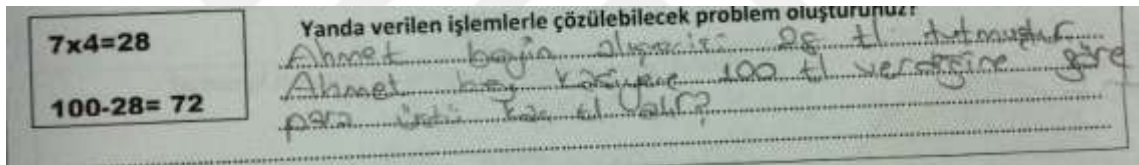 7x4=28
100-28= 72
Yanda verilen işlemlerle çözülebilecek problem oluşturunuz?
Ahmet beyin alışverişi 28 tl tutmuştur.
Ahmet bey kasiyere 100 tl verdiğine göre
para üstü kaç tl alır?